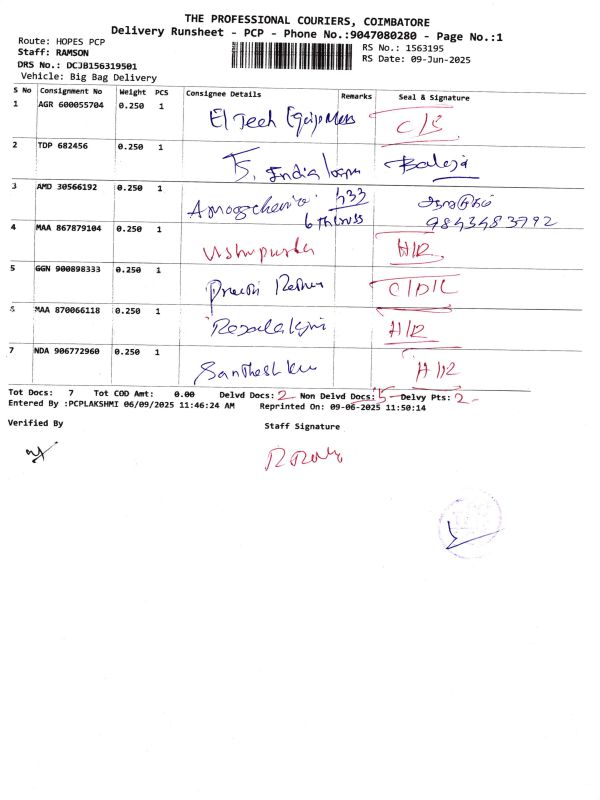 THE PROFESSIONAL COURIERS, COIMBATORE
Delivery Runsheet - PCP - Phone No.:9047080280 - Page No.:1
Route: HOPES PCP
RS No.: 1563195
Staff: RAMSON
RS Date: 09-Jun-2025
DRS No.: DCJB156319501
Vehicle: Big Bag Delivery
S No Consignment No Weight PCS Consignee Details Remarks Seal & Signature
1 AGR 600055704 0.250 1 El Tech C/S
2 TDP 682456 0.250 1 India Balaja
3 AMD 30566192 0.250 1 533
6th cross 9843483792
4 MAA 867879104 0.250 1 H/R
5 GGN 900898333 0.250 1
6 MAA 870066118 0.250 1 H/R
7 NDA 906772960 0.250 1 H/R
Tot Docs: 7 Tot COD Amt: 0.00 Delvd Docs: 2 Non Delvd Docs: 5 Delvy Pts: 2
Entered By :PCPLAKSHMI 06/09/2025 11:46:24 AM Reprinted On: 09-06-2025 11:50:14
Verified By Staff Signature